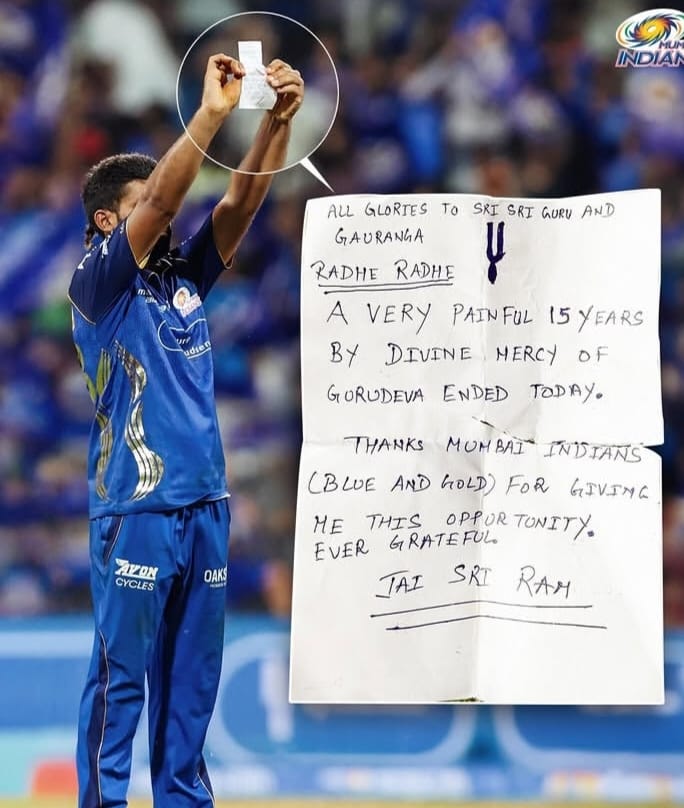 MUM
INDIAN
ALL GLORIES TO SRI SRI GURU AND
GAURANGA
RADHE RADHE
A VERY PAINFUL 15 YEARS
BY DIVINE MERCY OF
GURUDEVA ENDED TODAY.
THANKS MUMBAI INDIANS
(BLUE AND GOLD) FOR GIVING
ME THIS OPPURTUNITY.
EVER GRATEFUL.
JAI SRI RAM
AVON
CYCLES
OAKS